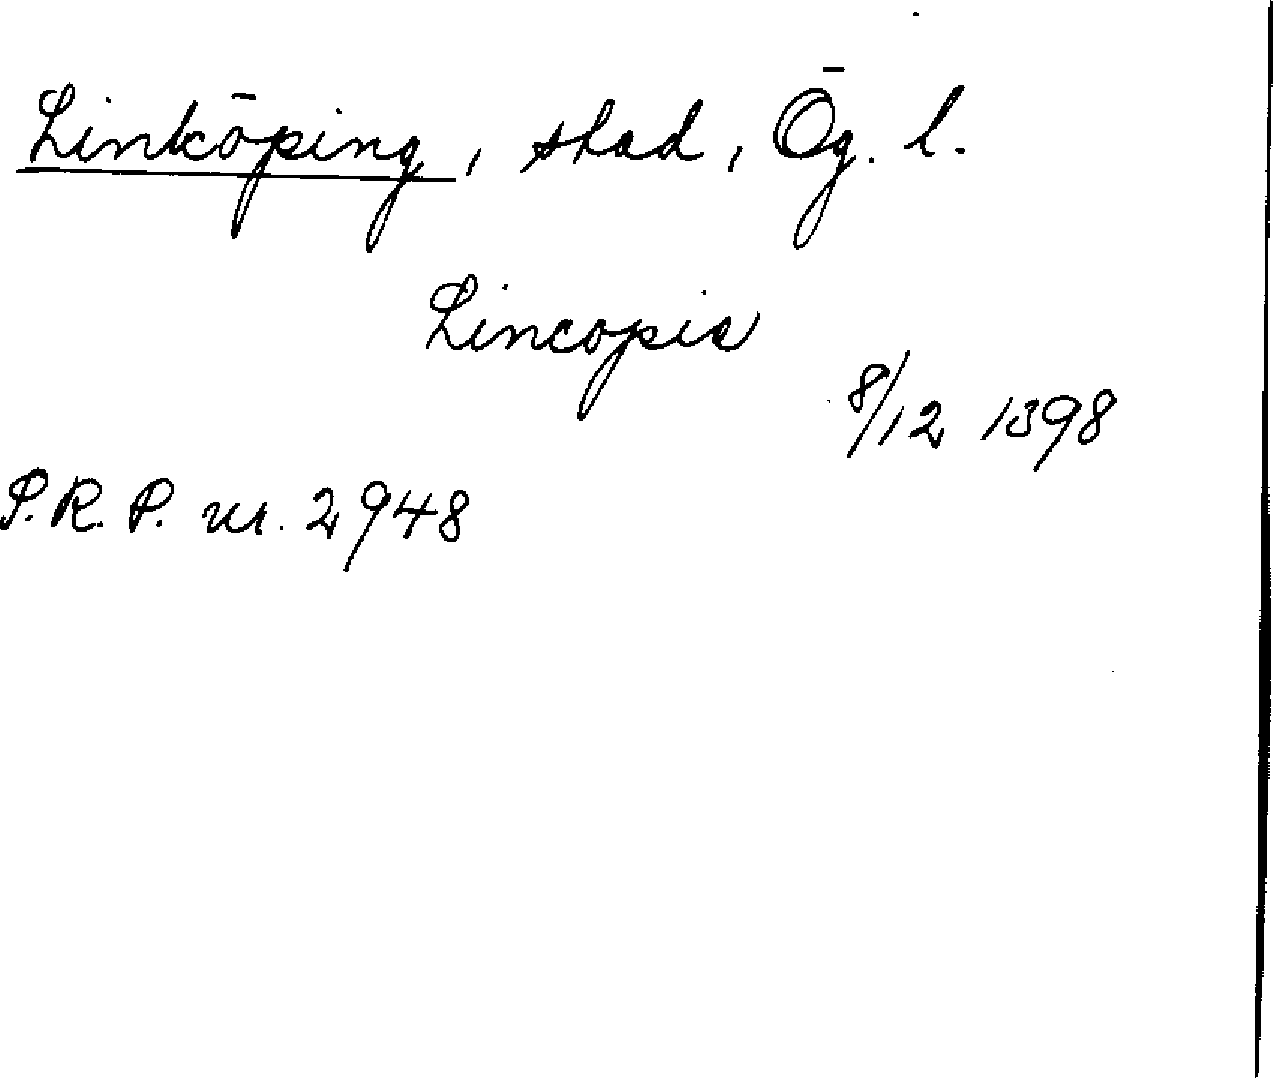 Linköping, stad, Ög. l.
Lincopie
8/12 1398
S.R.P. nr. 2948